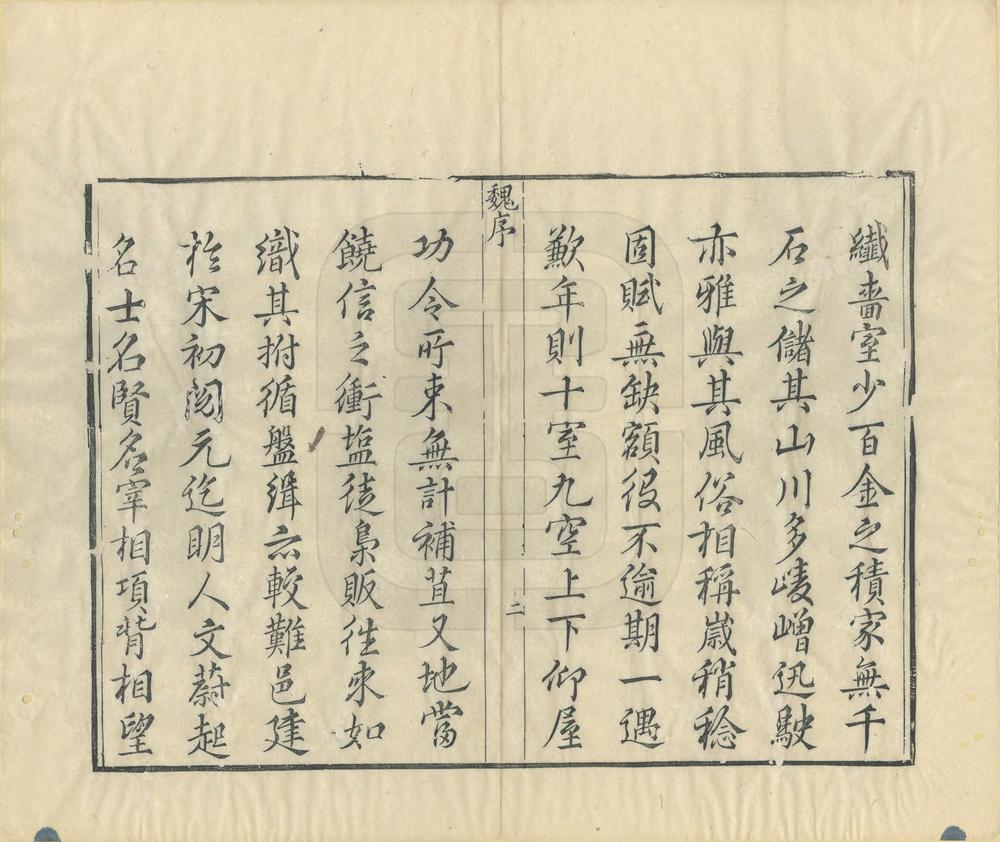 纖嗇室少百金之積家無千
石之儲其山川多崚嶒迅駛
亦雅與其風俗相稱歲稍稔
固賦無缺額役不逾期一遇
歉年則十室九空上下仰屋
魏序
二
功令所束無計補苴又地當
饒信之衝塩徒梟販徃來如
織其拊循盤緝亦較難邑建
於宋初閱元迄明人文蔚起
名士名賢名宰相項背相望